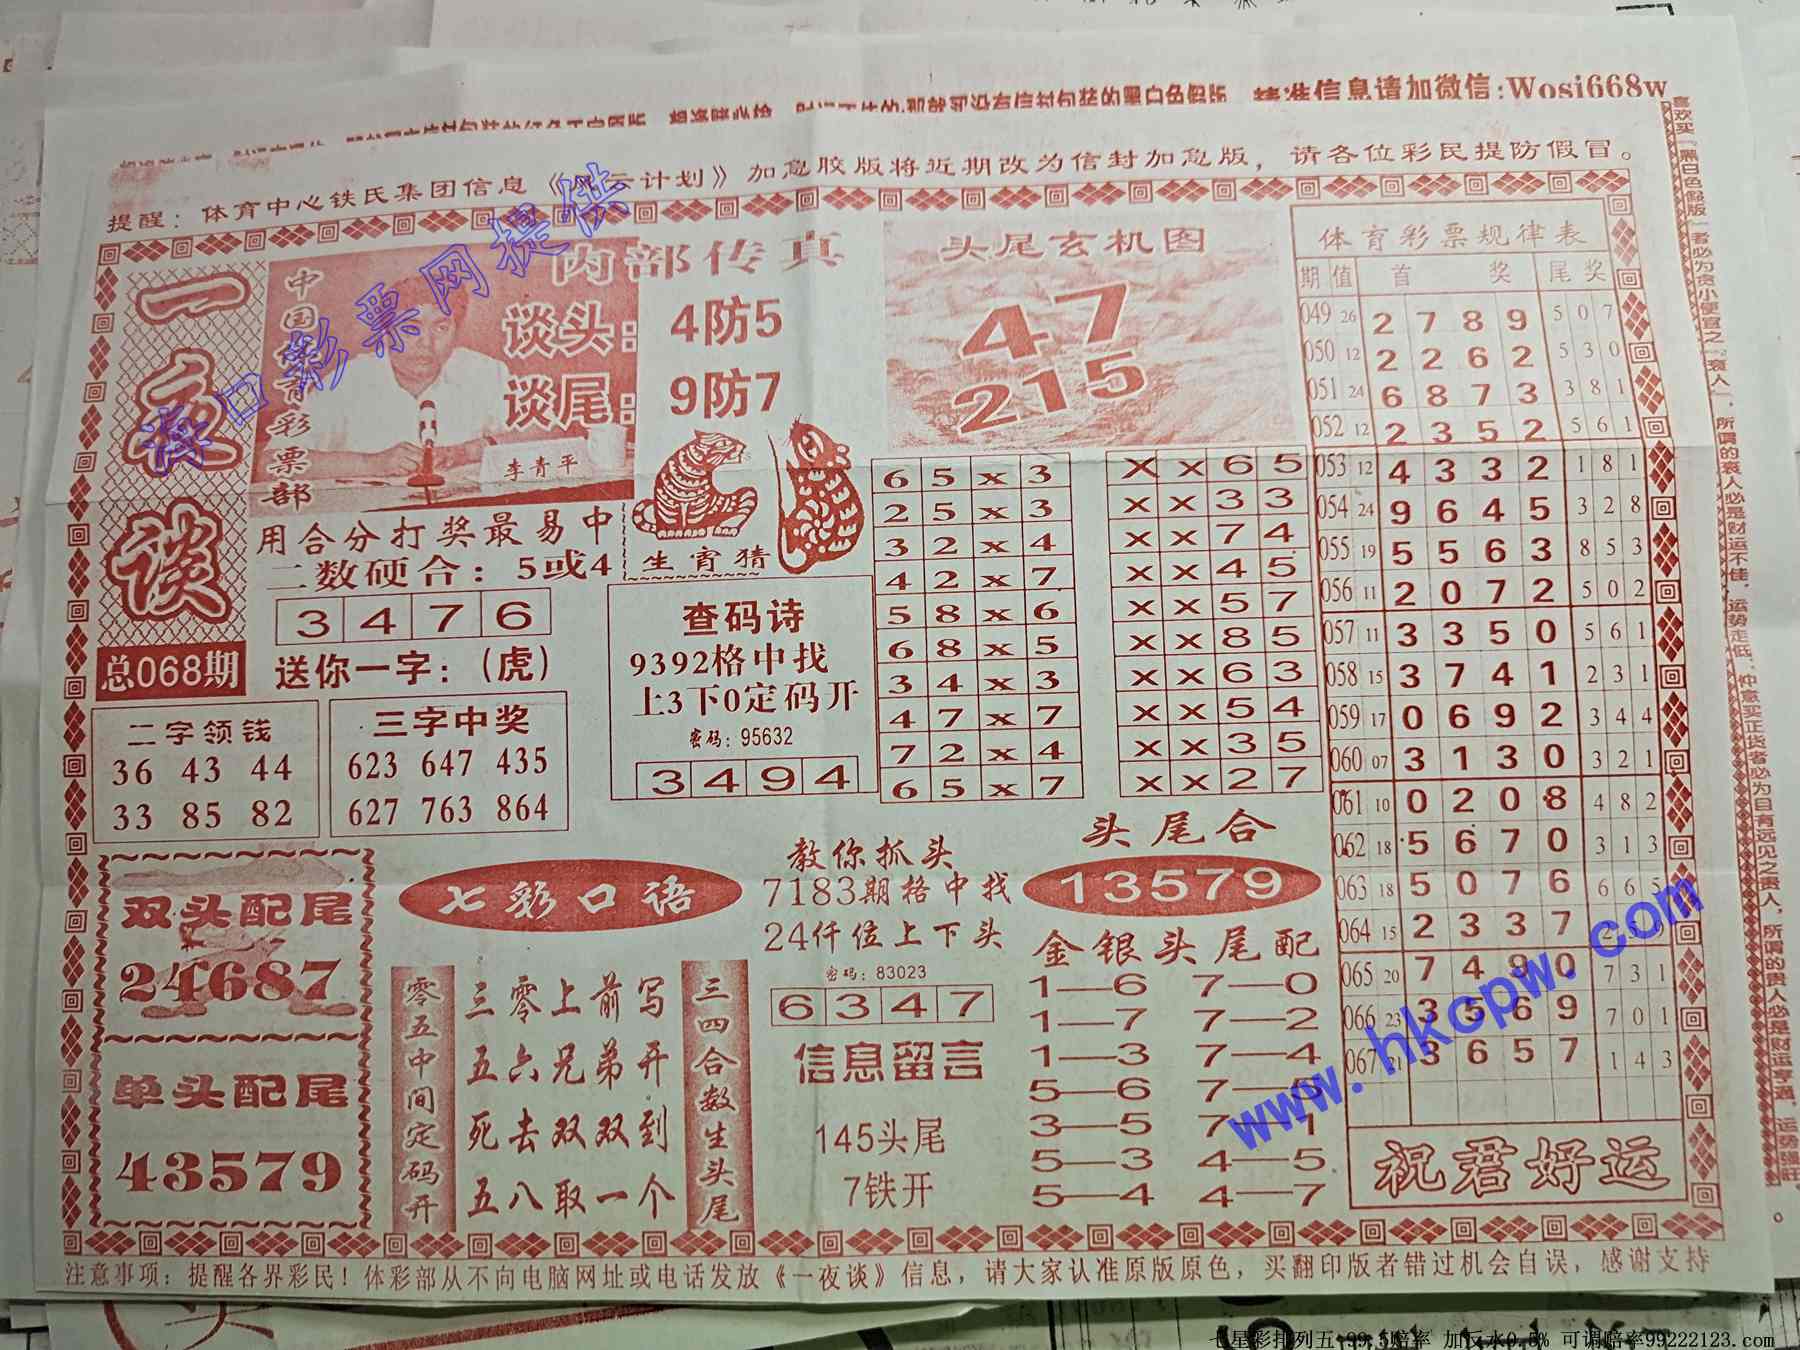 精准信息请加微信:Wosi668w
提醒：体育中心铁氏集团信息《风云计划》加急胶版将近期改为信封加急版，请各位彩民提防假冒。
海口彩票网提供
一夜谈
总068期
中国体育彩票部
内部传真
谈头：4防5
谈尾：9防7
李青平
头尾玄机图
47
215
用合分打奖最易中
二数硬合：5或4
3 4 7 6
送你一字：(虎)
生宵猜
查码诗
9392格中找
上3下0定码开
密码：95632
3 4 9 4
二字领钱
36 43 44
33 85 82
三字中奖
623 647 435
627 763 864
6 5 x 3
2 5 x 3
3 2 x 4
4 2 x 7
5 8 x 6
6 8 x 5
3 4 x 3
4 7 x 7
7 2 x 4
6 5 x 7
X x 6 5
x x 3 3
x x 7 4
x x 4 5
x x 5 7
x x 8 5
x x 6 3
x x 5 4
x x 3 5
x x 2 7
体育彩票规律表
期 值 首 奖 尾 奖
049 26 2 7 8 9 5 0 7
050 12 2 2 6 2 5 3 0
051 24 6 8 7 3 3 8 1
052 12 2 3 5 2 5 6 1
053 12 4 3 3 2 1 8 1
054 24 9 6 4 5 3 2 8
055 19 5 5 6 3 8 5 3
056 11 2 0 7 2 5 0 2
057 11 3 3 5 0 5 6 1
058 15 3 7 4 1 2 3 1
059 17 0 6 9 2 3 4 4
060 07 3 1 3 0 3 2 1
061 10 0 2 0 8 4 8 2
062 18 5 6 7 0 3 1 3
063 18 5 0 7 6 6 6 5
064 15 2 3 3 7
065 20 7 4 9 0 7 3 1
066 23 3 5 6 9 7 0 1
067 21 3 6 5 7 1 4 3
祝君好运
双头配尾
24687
单头配尾
43579
七彩口语
零五中间定码开
三零上前写
五六兄弟开
死去双双到
五八取一个
三四合数生头尾
教你抓头
7183期格中找
24仟位上下头
密码：83023
6 3 4 7
信息留言
145头尾
7铁开
头尾合
13579
金银头尾配
1—6 7—0
1—7 7—2
1—3 7—4
5—6
3—5 7—1
5—3 4—5
5—4 4—7
www.hkcpw.com
注意事项：提醒各界彩民！体彩部从不向电脑网址或电话发放《一夜谈》信息，请大家认准原版原色，买翻印版者错过机会自误，感谢支持
喜欢买“黑白色假版”者必为贪小便宜之“衰人”，所谓的衰人必是财运不佳，运势走低；仲意买正货者必为目有远见之贵人，所谓的贵人必是财运亨通，运势强旺。
七星彩排列五:99.5赔率 加反水0.5% 可调赔率99222123.com